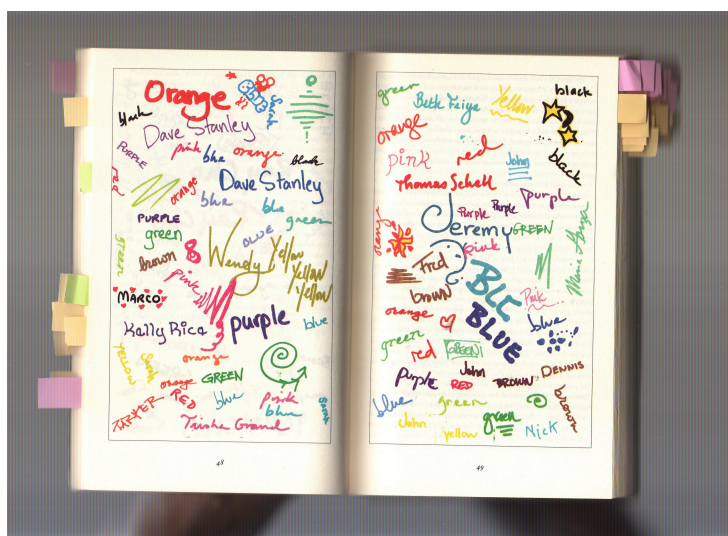 Orange
Sarah
black
Dave Stanley
PURPLE
pink
blue
orange
black
red
orange
Dave Stanley
blue
blue
green
PURPLE
green
green
brown
Wendy
Yellow
Yellow
Yellow
pink
MARCO
Kally Rica
purple
blue
YELLOW
Sarah
orange
orange
GREEN
RED
blue
pink
blue
Sarah
Trisha Grand
48
green
Beth Feige
Yellow
black
orange
pink
red
John
black
Thomas Schell
purple
Purple
Purple
Jeremy
GREEN
orange
pink
Fred
brown
BLC
BLUE
Pink
blue
orange
green
red
GREEN!
John
Purple
RED
BROWN
DENNIS
brown
blue
green
John
yellow
green
Nick
49